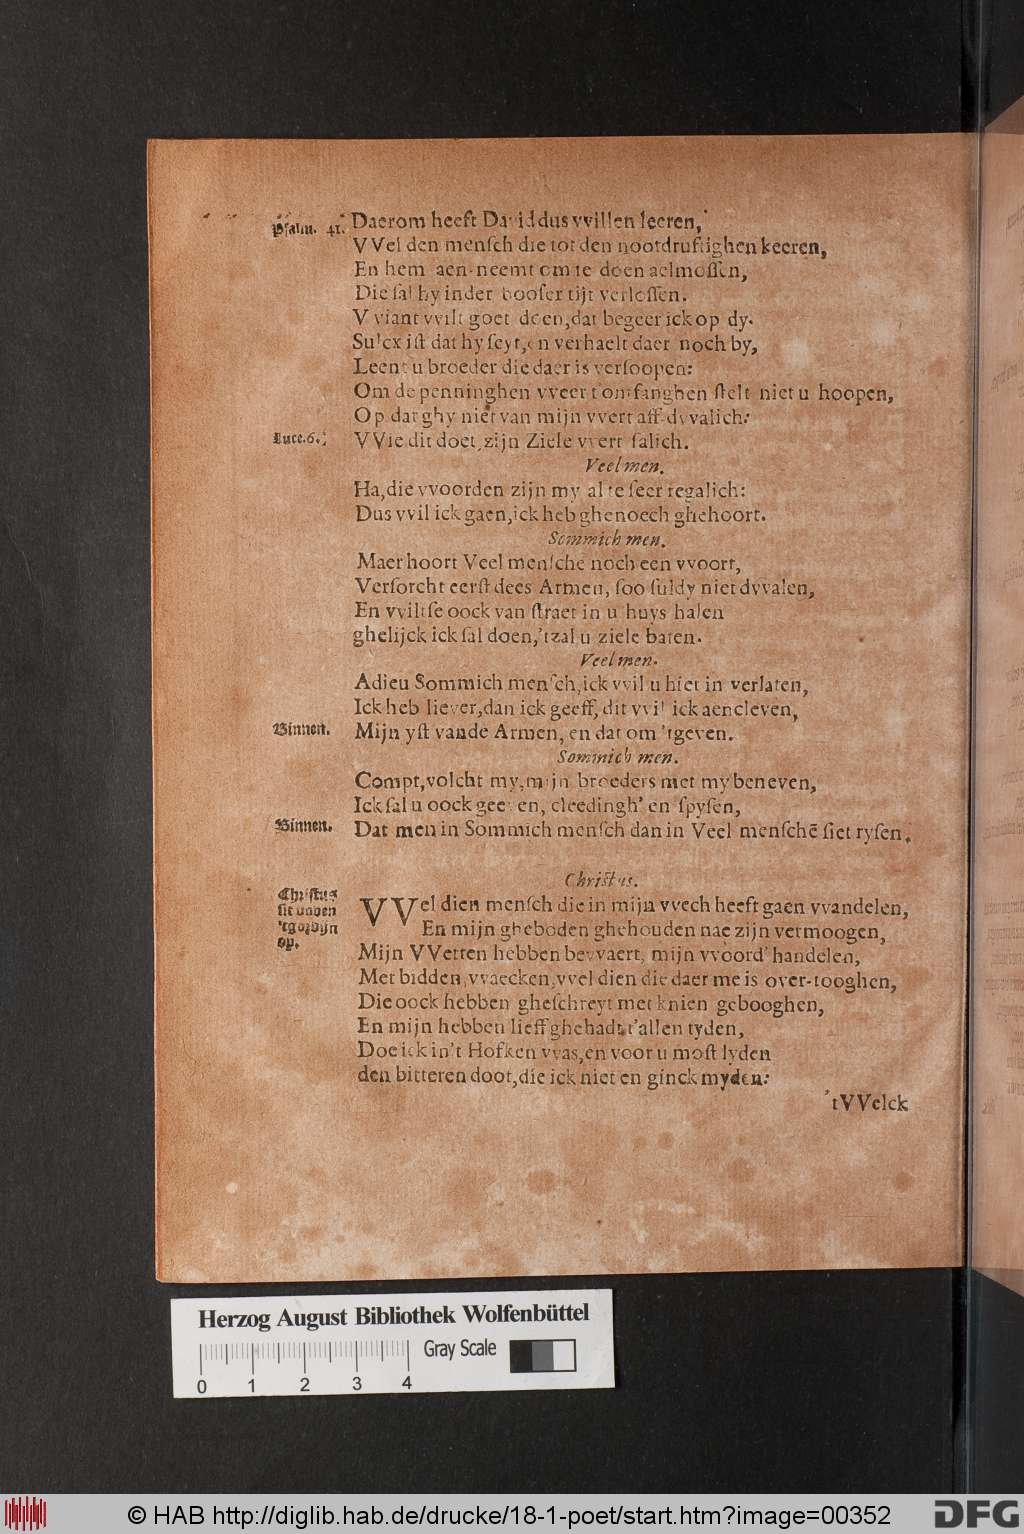 Psalm. 41. Daerom heeft David dus vvillen leeren,
VVel den menſch die tot den nootdruftighen keeren,
En hem aen-neemt om te doen aelmoſſen,
Die ſal hy inder booſer tijt verloſſen.
Vviant vvilt goet doen, dat begeer ick op dy.
Sulcx iſt dat hy ſeyt, en verhaelt daer noch by,
Leent u broeder die daer is verſoopen:
Om de penninghen vveer t'omfanghen ſtelt niet u hoopen,
Op dat ghy niet van mijn vvert aff-dvvalich:
Luce. 6. VVie dit doet, zijn Ziele vvert ſalich.
Veel men.
Ha, die vvoorden zijn my al te ſeer regalich:
Dus vvil ick gaen, ick heb ghenoech ghehoort.
Sommich men.
Maer hoort Veel menſche noch een vvoort,
Verſorcht eerſt dees Armen, ſoo ſuldy niet dvvalen,
En vviltſe oock van ſtraet in u huys halen
ghelijck ick ſal doen, 'tzal u ziele baten.
Veel men.
Adieu Sommich menſch, ick vvil u hiet in verlaten,
Ick heb liever, dan ick geeff, dit vvil ick aencleven,
Binnen. Mijn yſt vande Armen, en dat om 'tgeven.
Sommich men.
Compt, volcht my, mijn broeders met my beneven,
Ick ſal u oock geeven, cleedingh' en ſpyſen,
Binnen. Dat men in Sommich menſch dan in Veel menſchē ſiet ryſen.
Christus.
Christus
sit
'tgordijn
op.
VVel dien menſch die in mijn vvech heeft gaen vvandelen,
En mijn gheboden ghehouden nae zijn vermoogen,
Mijn VVetten hebben bevvaert, mijn vvoord' handelen,
Met bidden, vvaecken, vvel dien die daer me is over-tooghen,
Die oock hebben gheſchreyt met knien gebooghen,
En mijn hebben lieff ghehadt t'allen tyden,
Doe ick in't Hofken vvas, en voor u moſt lyden
den bitteren doot, die ick niet en ginck myden:
'tVVelck
Herzog August Bibliothek Wolfenbüttel
Gray Scale
0 1 2 3 4
© HAB http://diglib.hab.de/drucke/18-1-poet/start.htm?image=00352
DFG